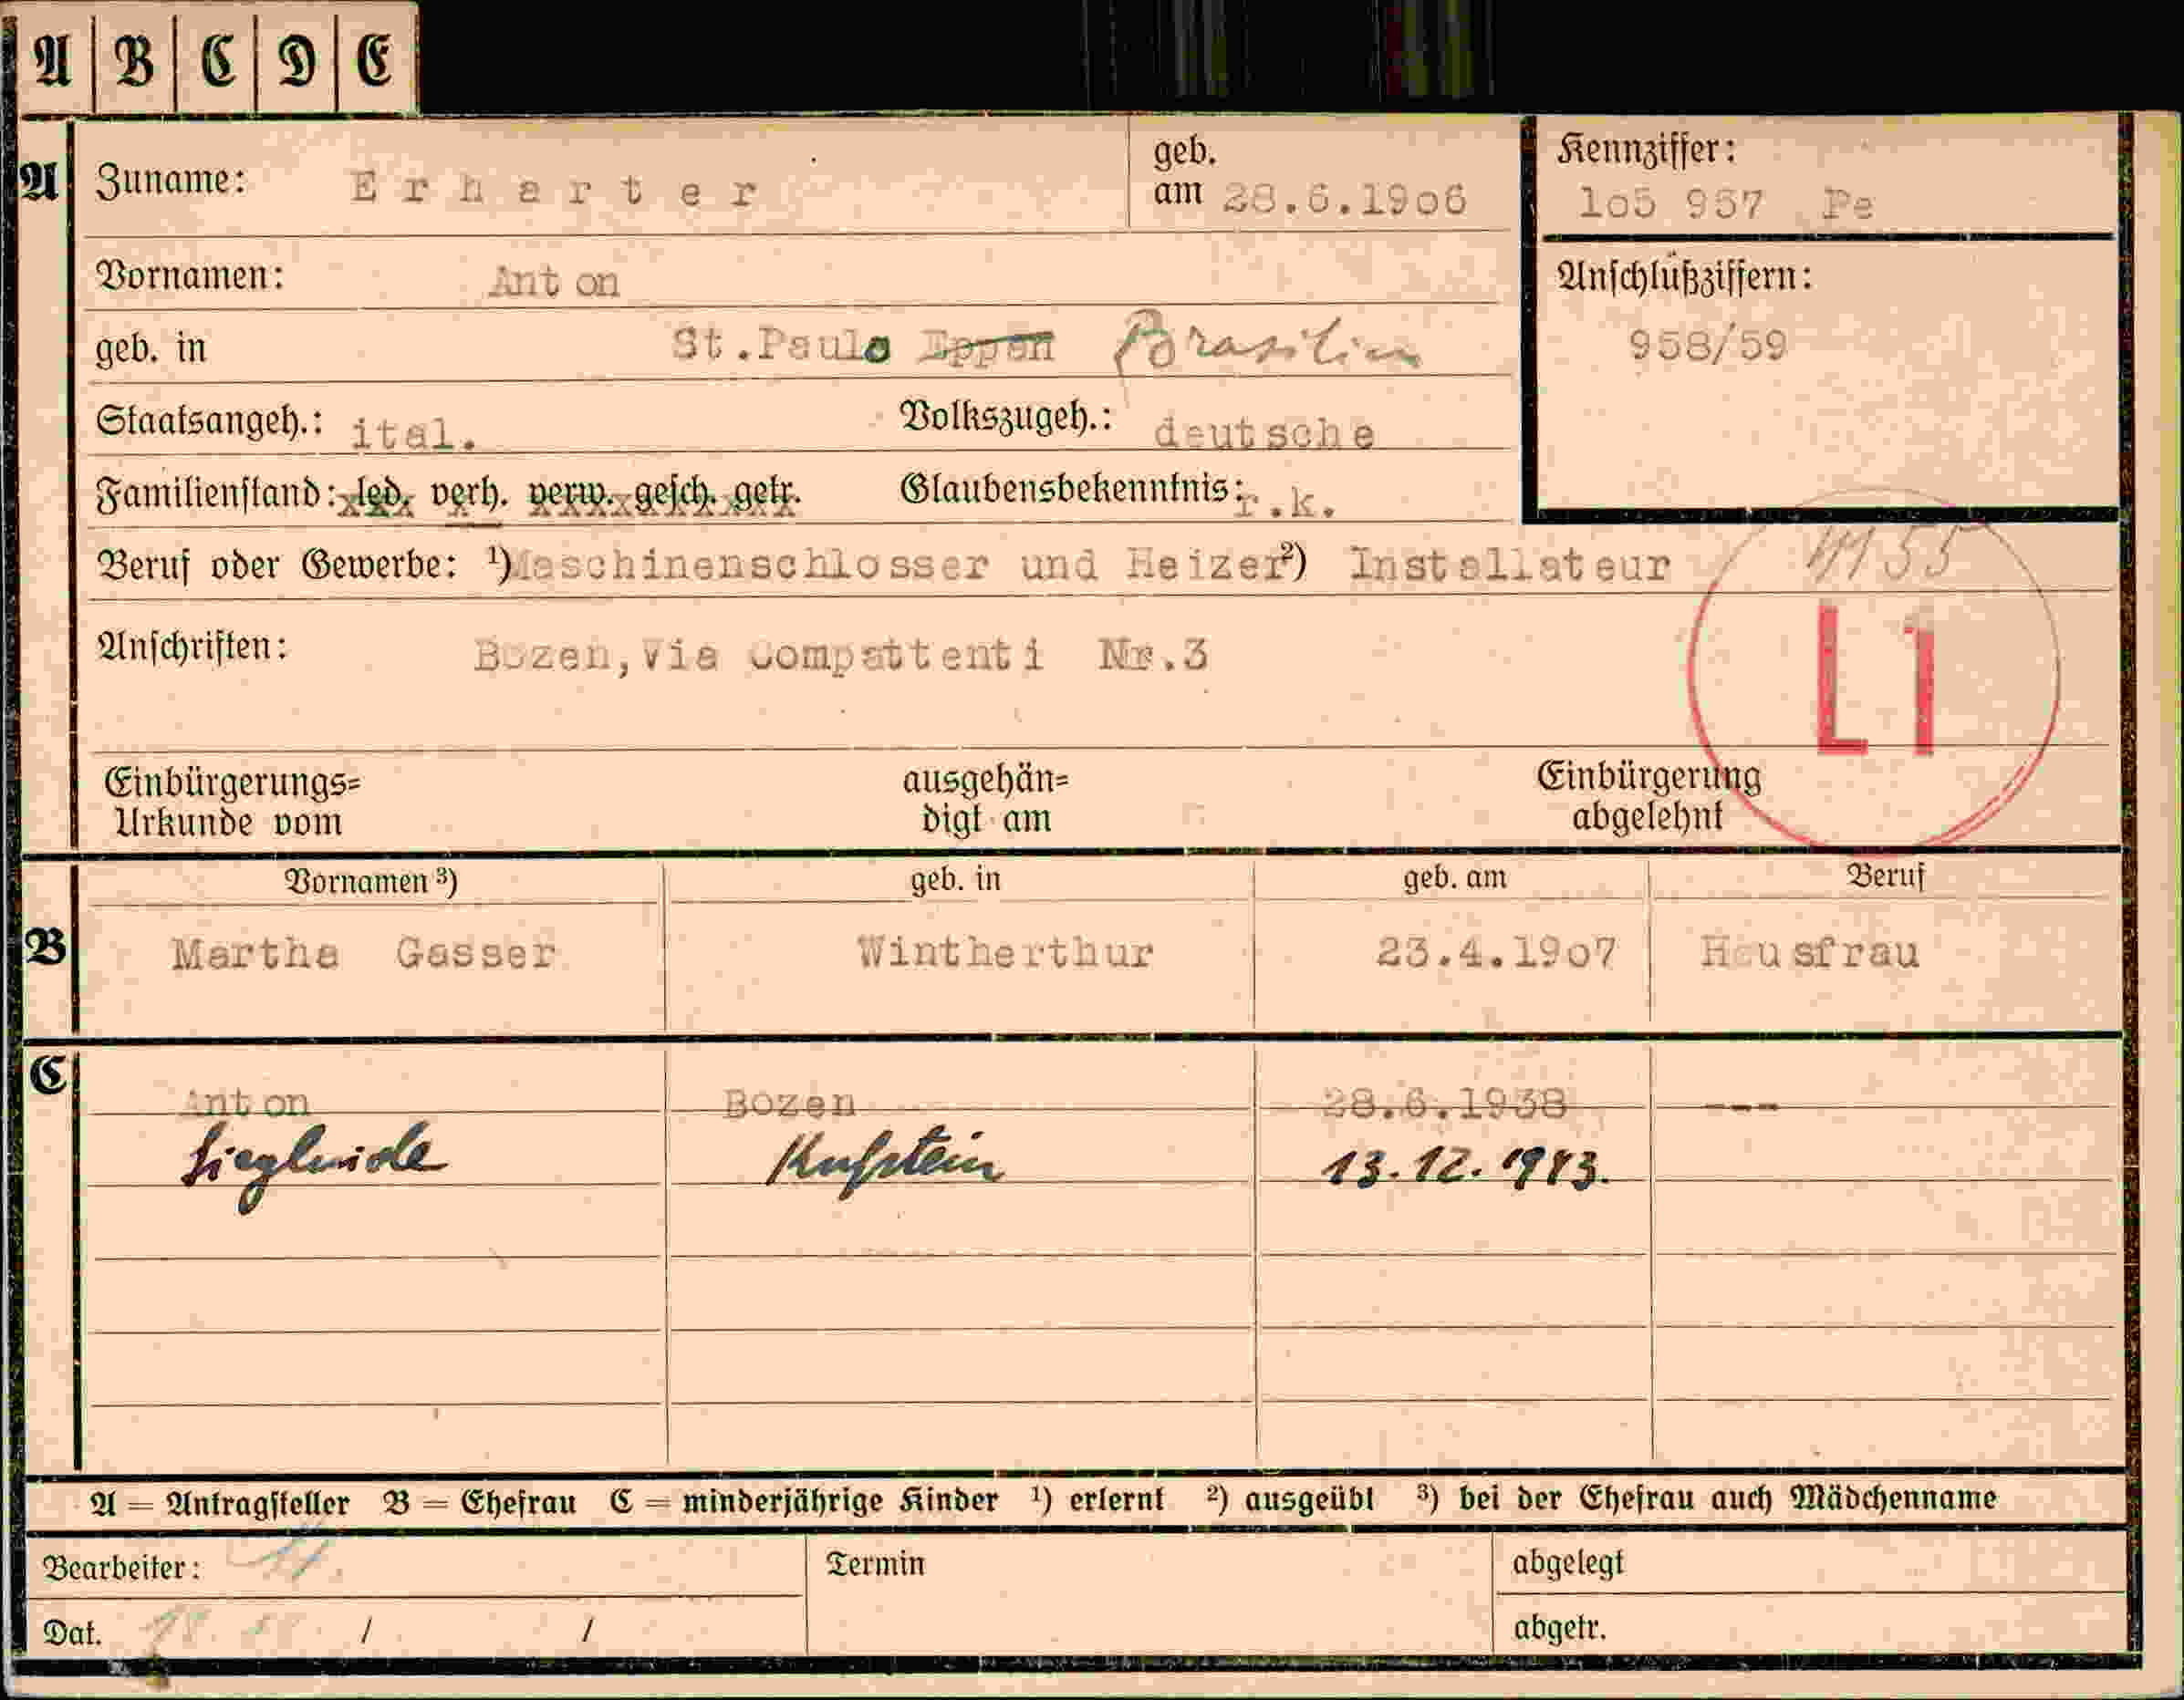 A B C D E
A Zuname: Erharter geb. am 28.6.19o6
Kennziffer: 1o5 957 Pe
Vornamen: Anton
Anschlußziffern: 958/59
geb. in St.Paulo Eppan Brasilien
Staatsangeh.: ital. Volkszugeh.: deutsche
Familienstand: led. verh. verw. gesch. getr. Glaubensbekenntnis: r.k.
Beruf oder Gewerbe: ¹) Maschinenschlosser und Heizer ²) Installateur
L1
Anschriften: Bozen,Via Compattenti Nr.3
Einbürgerungs= Urkunde vom ausgehän= digt am Einbürgerung abgelehnt
Vornamen ³) geb. in geb. am Beruf
B Martha Gasser Wintherthur 23.4.19o7 Hausfrau
C Anton Bozen 28.6.1938 ---
Sieglinde Kufstein 13.12.1943.
A = Antragsteller B = Ehefrau C = minderjährige Kinder ¹) erlernt ²) ausgeübt ³) bei der Ehefrau auch Mädchenname
Bearbeiter: Termin abgelegt
Dat. / / abgetr.